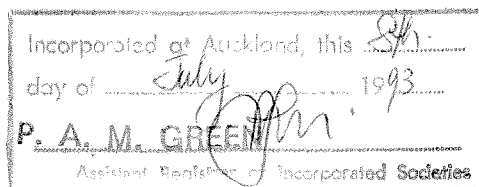 Incorporated at Auckland, this 8th
day of July 1993
P. A. M. GREEN
Assistant Registrar of Incorporated Societies